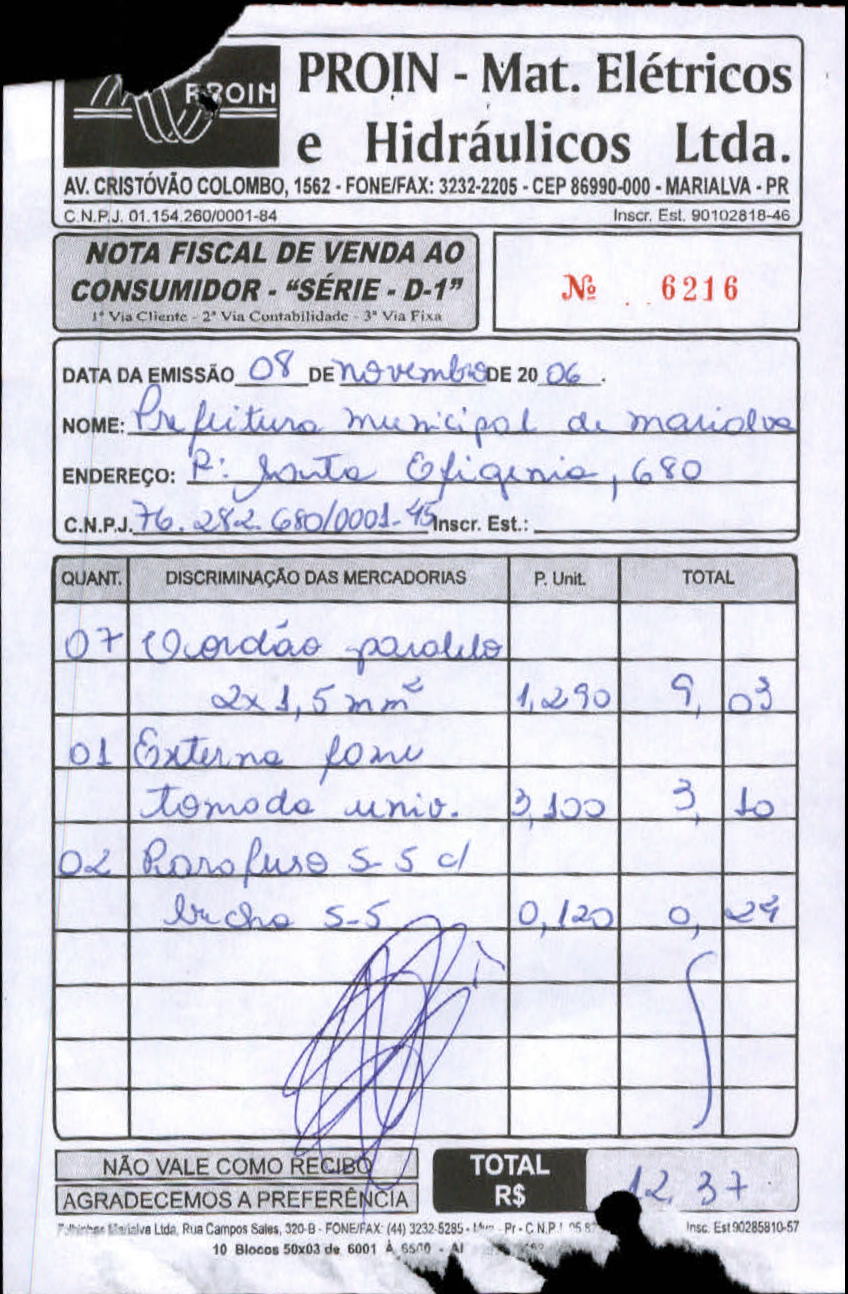 PROIN
PROIN - Mat. Elétricos
e Hidráulicos Ltda.
AV. CRISTÓVÃO COLOMBO, 1562 - FONE/FAX: 3232-2205 - CEP 86990-000 - MARIALVA - PR
C.N.P.J. 01.154.260/0001-84 Inscr. Est. 90102818-46
NOTA FISCAL DE VENDA AO
CONSUMIDOR - “SÉRIE - D-1”
1ª Via Cliente - 2ª Via Contabilidade - 3ª Via Fixa
Nº 6216
DATA DA EMISSÃO 08 DE novembro DE 20 06.
NOME: Prefeitura municipal de marialva
ENDEREÇO: R: Santa Efigenia, 680
C.N.P.J. 76.282.680/0001-45 Inscr. Est.:
QUANT. DISCRIMINAÇÃO DAS MERCADORIAS P. Unit. TOTAL
07 Cordão paralelo
2x1,5mm² 1,290 9,03
01 Externa
tomada univ. 3,100 3,10
02 Parafuso S-5 c/
bucha S-5 0,120 0,24
NÃO VALE COMO RECIBO
AGRADECEMOS A PREFERÊNCIA
TOTAL
R$ 12,37
Marialva Ltda, Rua Campos Sales, 320-B - FONE/FAX: (44) 3232-5285 - - Pr - C.N.P.J. Insc. Est 90285810-57
10 Blocos 50x03 de 6001 À 6500 -